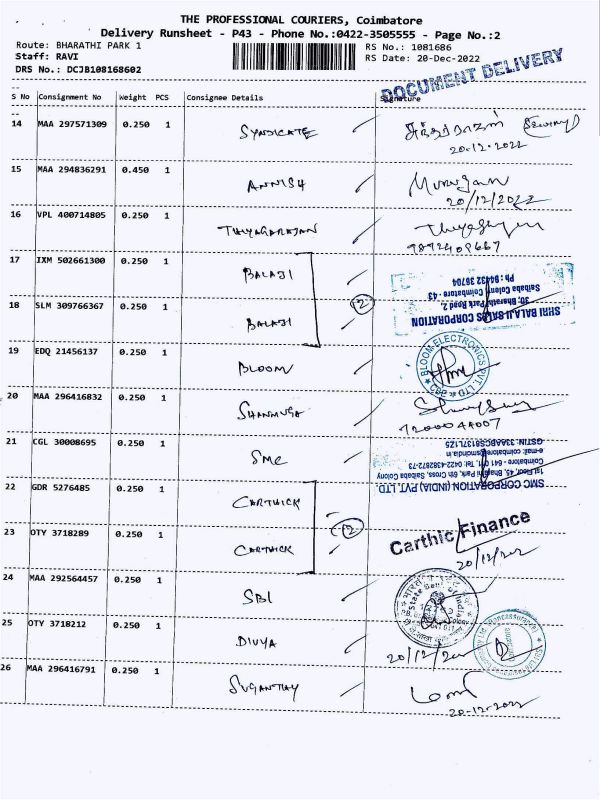 THE PROFESSIONAL COURIERS, Coimbatore
Delivery Runsheet - P43 - Phone No.:0422-3505555 - Page No.:2
Route: BHARATHI PARK 1
RS No.: 1081686
Staff: RAVI
RS Date: 20-Dec-2022
DRS No.: DCJB108168602
DOCUMENT DELIVERY
S No Consignment No Weight PCS Consignee Details Signature
14 MAA 297571309 0.250 1 SYNDICATE
20-12-2022
15 MAA 294836291 0.450 1 ANNISH Murugan
20/12/2022
16 VPL 400714805 0.250 1 THIYAGARAJAN
9892409667
17 IXM 502661300 0.250 1 BALAJI
18 SLM 309766367 0.250 1 BALAJI
12
SHRI BALAJI SALES CORPORATION
30, Bharathi Park Road 2
Saibaba Colony, Coimbatore - 43
Ph : 94432 36704
19 EDQ 21456137 0.250 1 BLOOM
BLOOM ELECTRONICS PVT. LTD
CBE
20 MAA 296416832 0.250 1 SHANMUGA
21 CGL 30008695 0.250 1 SMC
SMC CORPORATION (INDIA) PVT. LTD
1st Floor, 45, Bharathi Park, 6th Cross, Saibaba Colony
Coimbatore - 641 011. Tel: 0422-4382872-73
e-mail: coimbatore@smcindia.in
GSTIN:
22 GDR 5276485 0.250 1 CARTHICK
23 OTY 3718289 0.250 1 CARTHICK
12
Carthic Finance
20/12/202
24 MAA 292564457 0.250 1 SBI
State Bank of India
25 OTY 3718212 0.250 1 DIVYA
20/12/202
26 MAA 296416791 0.250 1 SUGANTHY
20-12-2022